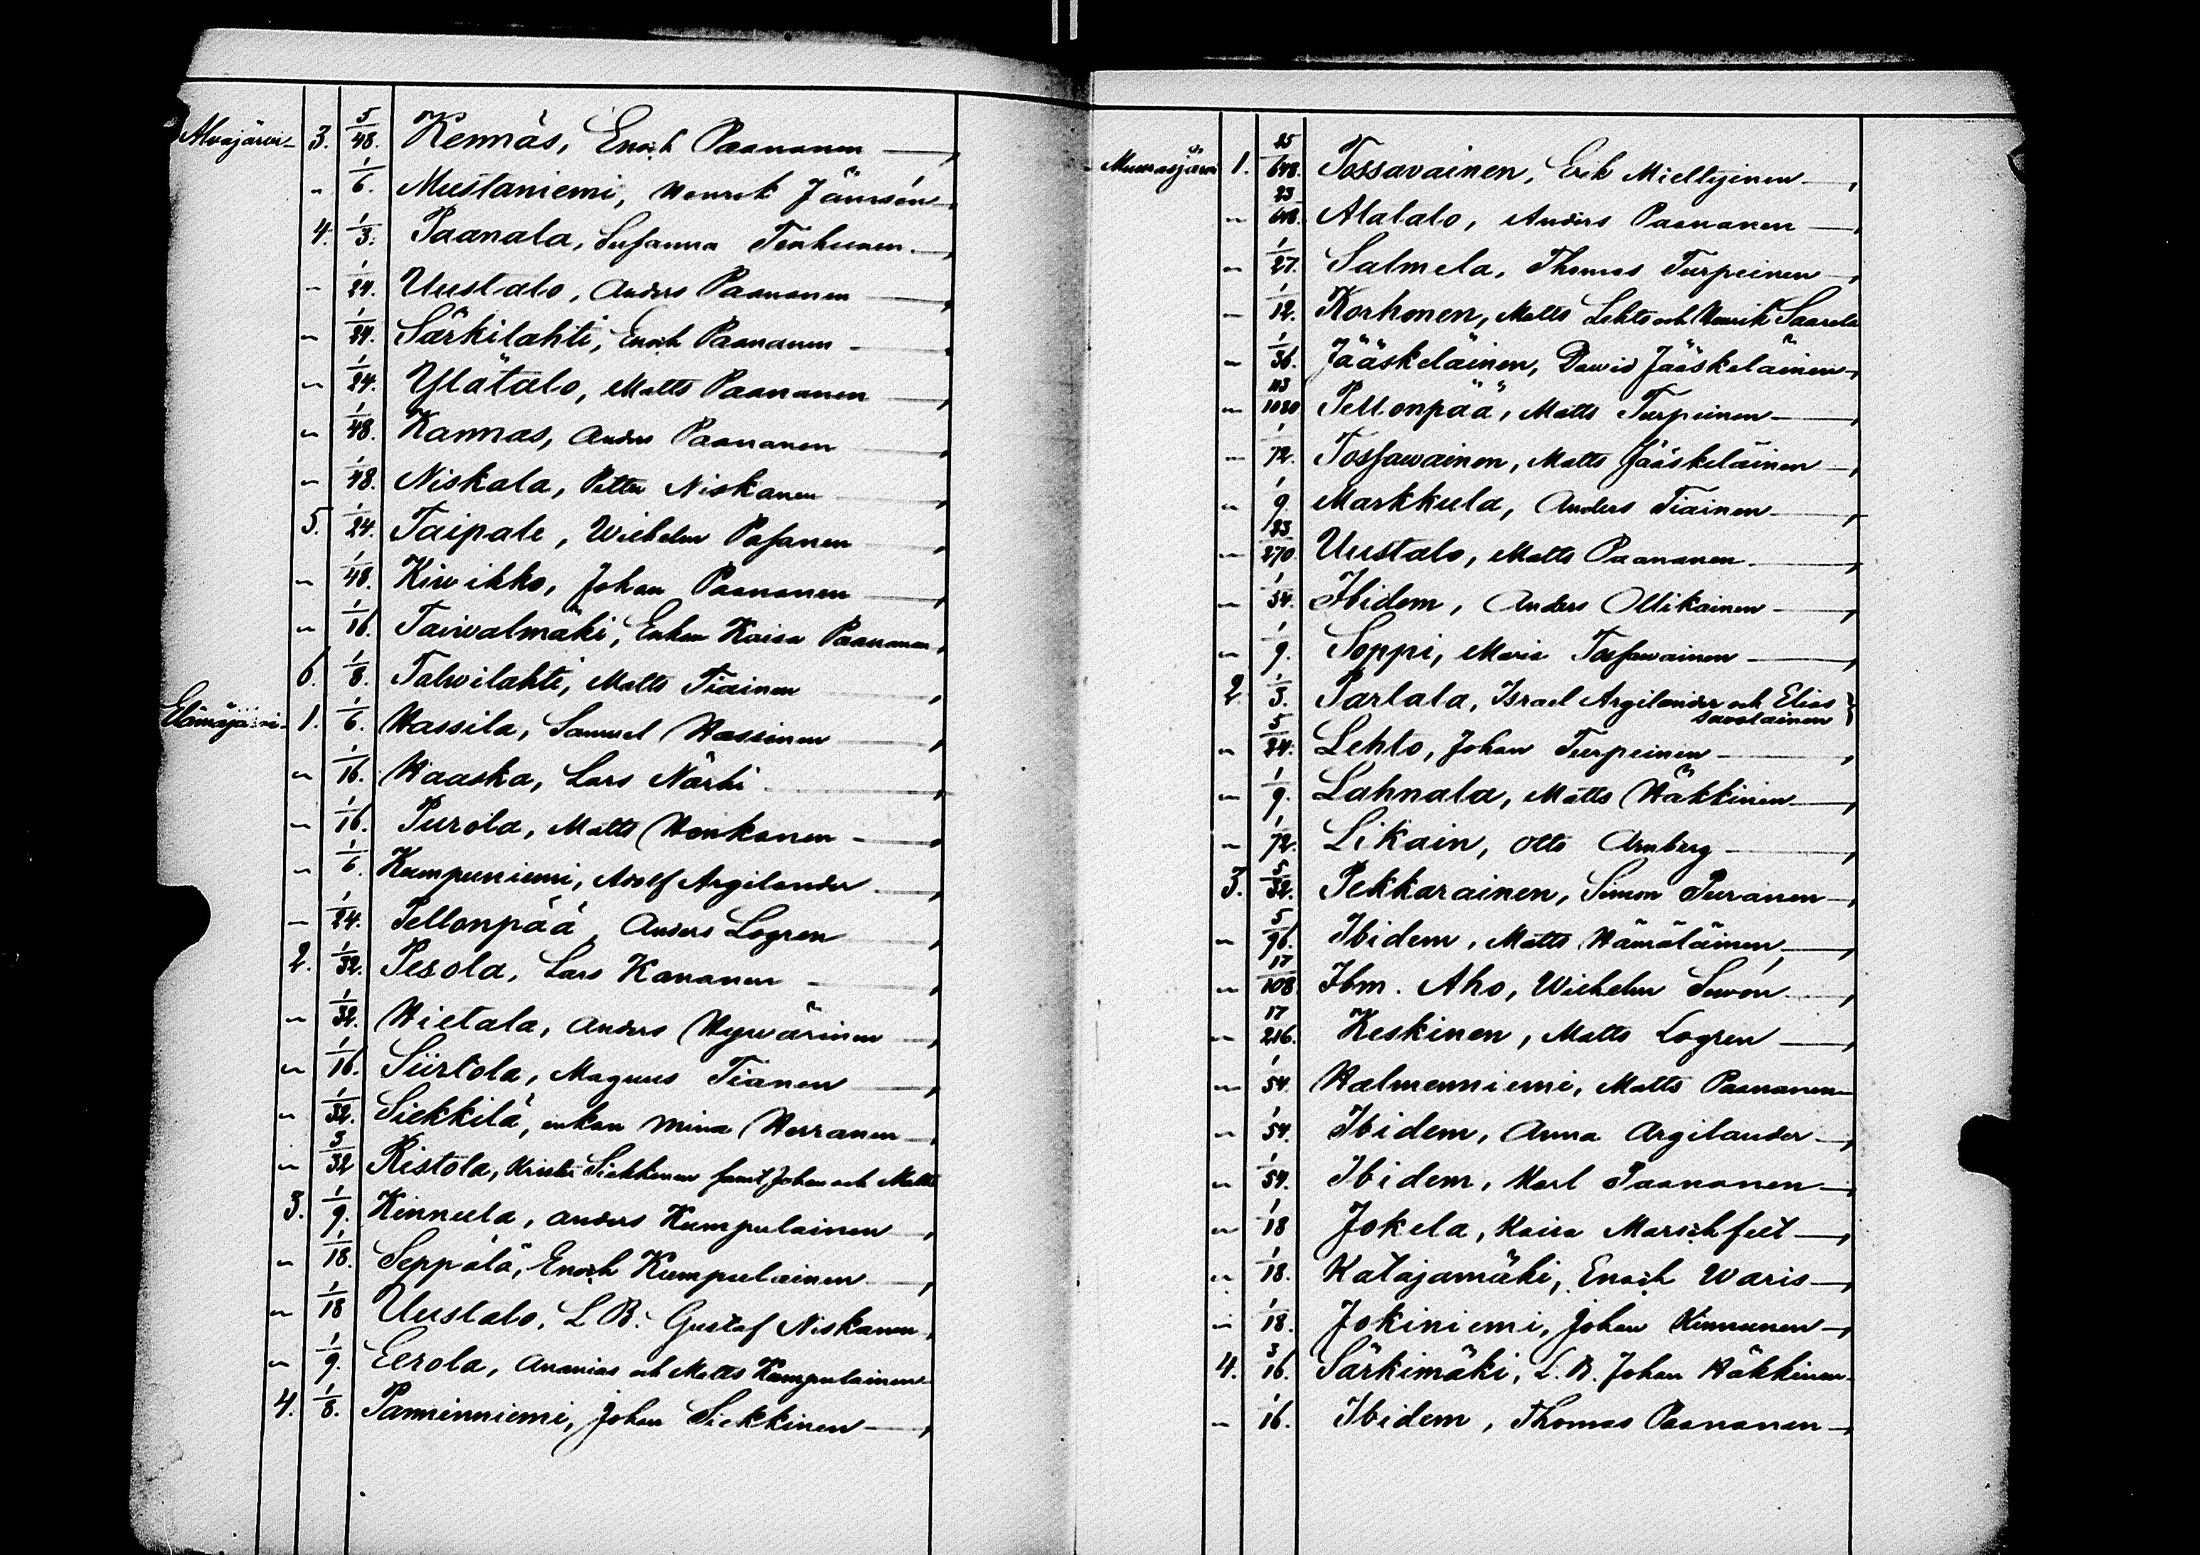 Alvajärvi 3. 5/48. Kennäs, Enoch Paananen
" 1/6. Mustaniemi, Henrik Jämsén
4. 1/3. Paanala, Susanna Tenhunen
" 1/24. Uustalo, Anders Paananen
" 1/24. Särkilahti, Enoch Paananen
" 1/24. Ylätalo, Matts Paananen
" 1/48. Kannas, Anders Paananen
" 1/48. Niskala, Petter Niskanen
5. 1/24. Taipale, Wilhelm Pasanen
" 1/48. Kiwikko, Johan Paananen
" 1/16. Taivvalmäki, Enkan Kaisa Paananen
6. 1/8. Talwilahti, Matts Tiainen
Elämäjärvi 1. 1/6. Hassila, Samuel Hassinen
" 1/16. Haaska, Lars Närhi
" 1/16. Purola, Matts Honkonen
" 1/6. Kumpuniemi, Adolf Argilander
" 1/24. Pellonpää, Anders Logren
2. 1/32. Pesola, Lars Kananen
" 1/32. Hietala, Anders Hyvvärinen
" 1/16. Siirtola, Magnus Tianen
" 1/32. Siekkilä, enkan Mina Herranen
" 3/32 Ristola, Krister Siekkinen samt Johan och Matts
3. 1/9. Kinnula, Anders Kumpulainen
" 1/18. Seppälä, Enoch Kumpulainen
" 1/18 Uustalo, L.B. Gustaf Niskanen
" 1/9. Eerola, Ananias och Matts Kumpulainen
4. 1/8. Panninniemi, Johan Siekkinen
Muurasjärvi 1. 25/648. Tossavainen, Erik Mieltyinen
" 23/648. Alatalo, Anders Paananen
" 1/27. Salmela, Thomas Turpeinen
" 1/12. Korhonen, Matts Lehto och Henrik Saarela
" 1/36. Jääskeläinen, David Jääskeläinen
" 113/1080 Pellonpää, Matts Turpeinen
" 1/72. Tossawainen, Matts Jääskeläinen
" 1/9. Markkula, Anders Tiainen
" 23/270 Uustalo, Matts Paananen
" 1/54. Ibidem, Anders Ollikainen
" 1/9. Soppi, Maria Tossawainen
2 1/3. Parlala, Israel Argilander och Elias
Savolainen
" 5/24. Lehto, Johan Turpeinen
" 1/9. Lahnala, Matts Häkkinen
" 1/72. Likain, Otto Arnberg
3. 5/32. Pekkarainen, Simon Puranen
" 5/96. Ibidem, Matts Hämäläinen
" 17/108 Ibm. Aho, Wilhelm Suvón
" 17/216. Keskinen, Matts Logren
" 1/54. Halmenniemi, Matts Paananen
" 1/54. Ibidem, Anna Argilander
" 1/54. Ibidem, Karl Paananen
" 1/18 Jokela, Kaisa Marschfelt
" 1/18. Katajamäki, Enoch Waris
" 1/18. Jokiniemi, Johan Kinnunen
4. 3/16. Särkimäki, L.B. Johan Häkkinen
" 1/16. Ibidem, Thomas Paananen